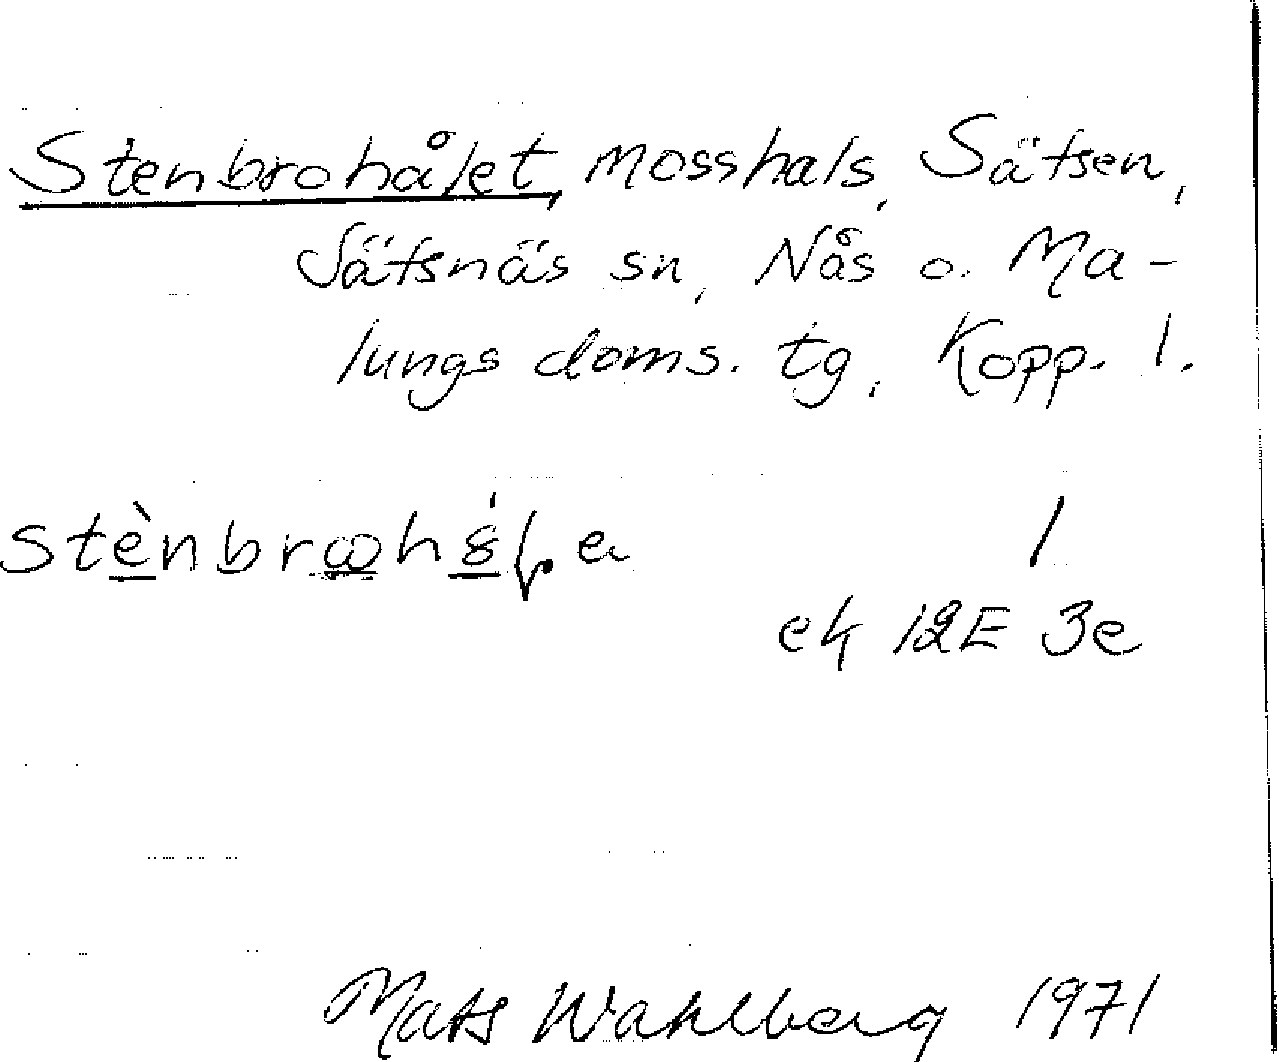 Stenbrohålet, mosshals, Sätsen,
Sätsnäs sn, Nås o. Ma-
lungs doms. tg, Kopp. l.
1
ek 12E 3e
Mats Wahlberg 1971